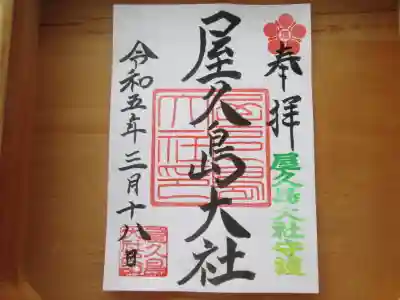 奉拝
屋久島大社守護
屋久島大社
令和五年三月十八日